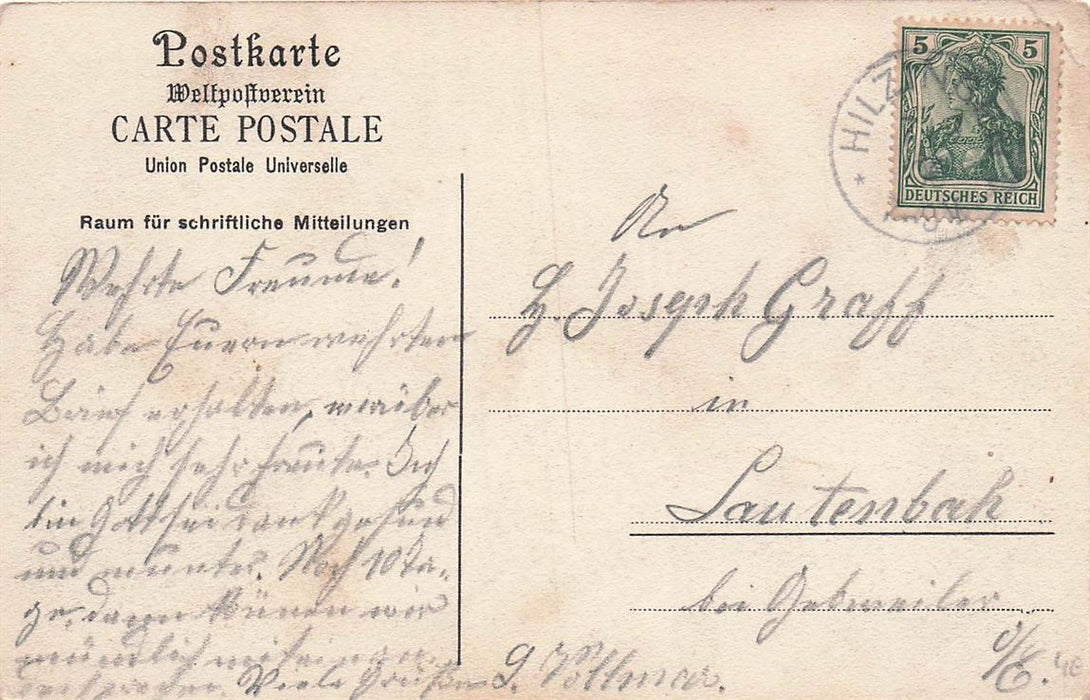 Postkarte
Weltpostverein
CARTE POSTALE
Union Postale Universelle
Raum für schriftliche Mitteilungen
Wehrte Freunde!
Habe Euern wehrten
Brief erhalten, worüber
ich mich sehr freute. Ich
bin Gott sei dank gesund
und munter. Noch 10 Ta-
ge, dann können wir
mündlich miteinan.
Viele Grüße
J. Vollmar.
5 5
DEUTSCHES REICH
HILZ
An
H. Joseph Graff
in
Lautenbah
bei Gebweiler
O/E.